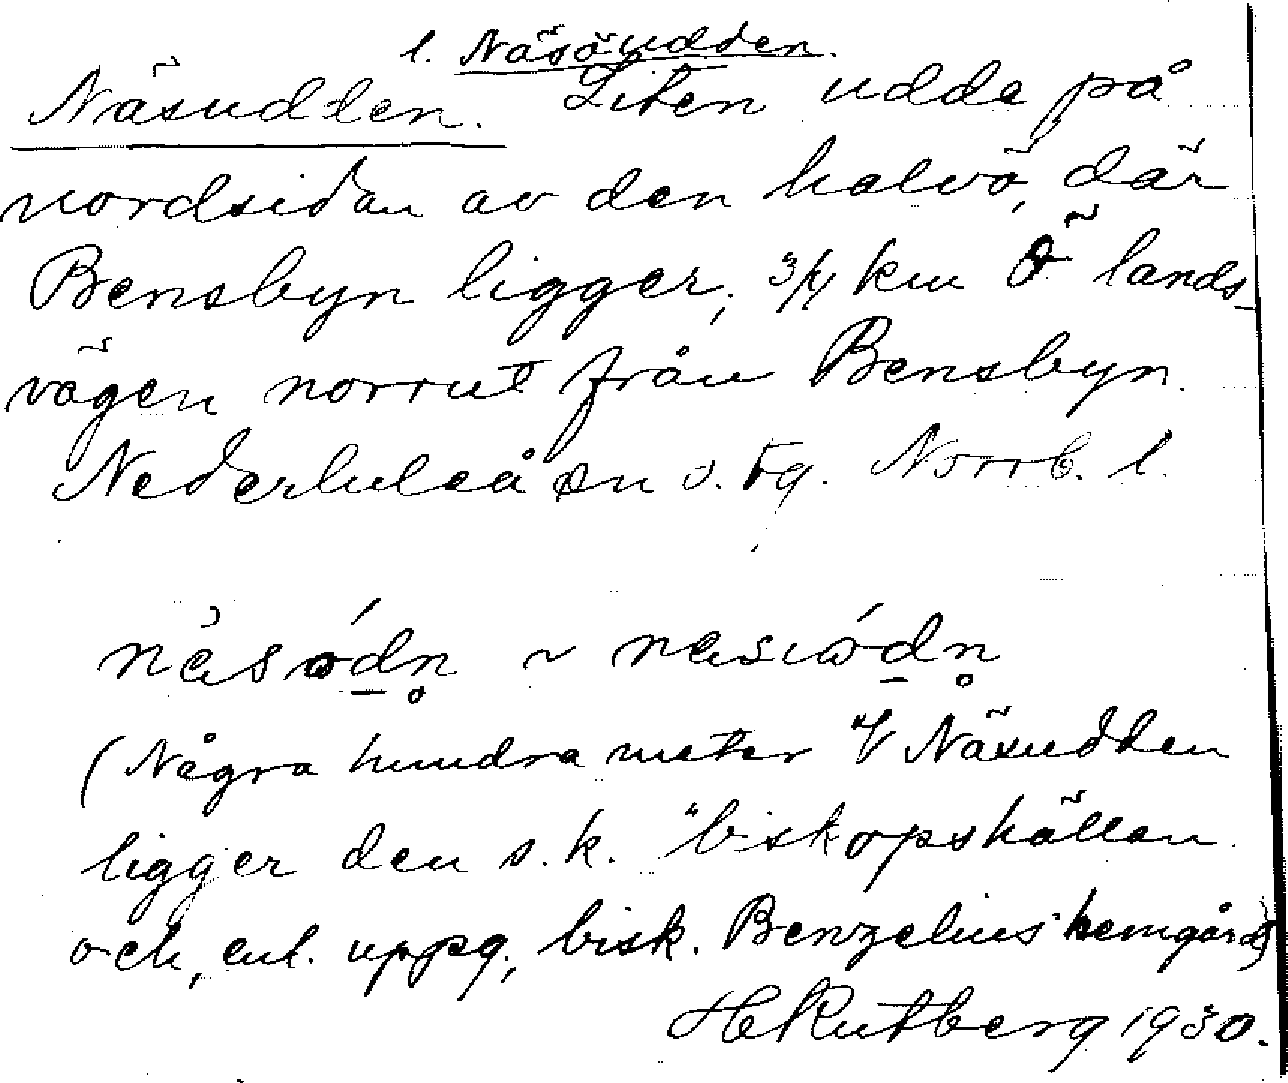 l. Näsöudden.
Näsudden. Liten udde på
nordsidan av den halvö, där
Bensbyn ligger, 3/4 km Ö lands-
vägen norrut från Bensbyn.
Nederluleå sn o. tg. Norrb. l.
~
(Några hundra meter V Näsudden
ligger den s.k. "biskopskällan
och, enl. uppg., bisk. Benzelius' hemgård)
H Rutberg 1930.